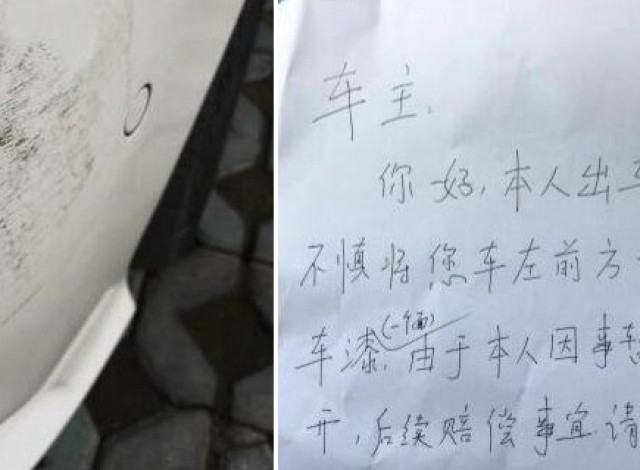 车主,
你好,本人出
不慎将您车左前方
车漆,由于本人因事
开,后续赔偿事宜请